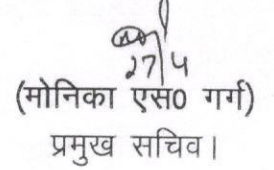 27/4
(मोनिका एस0 गर्ग)
प्रमुख सचिव।